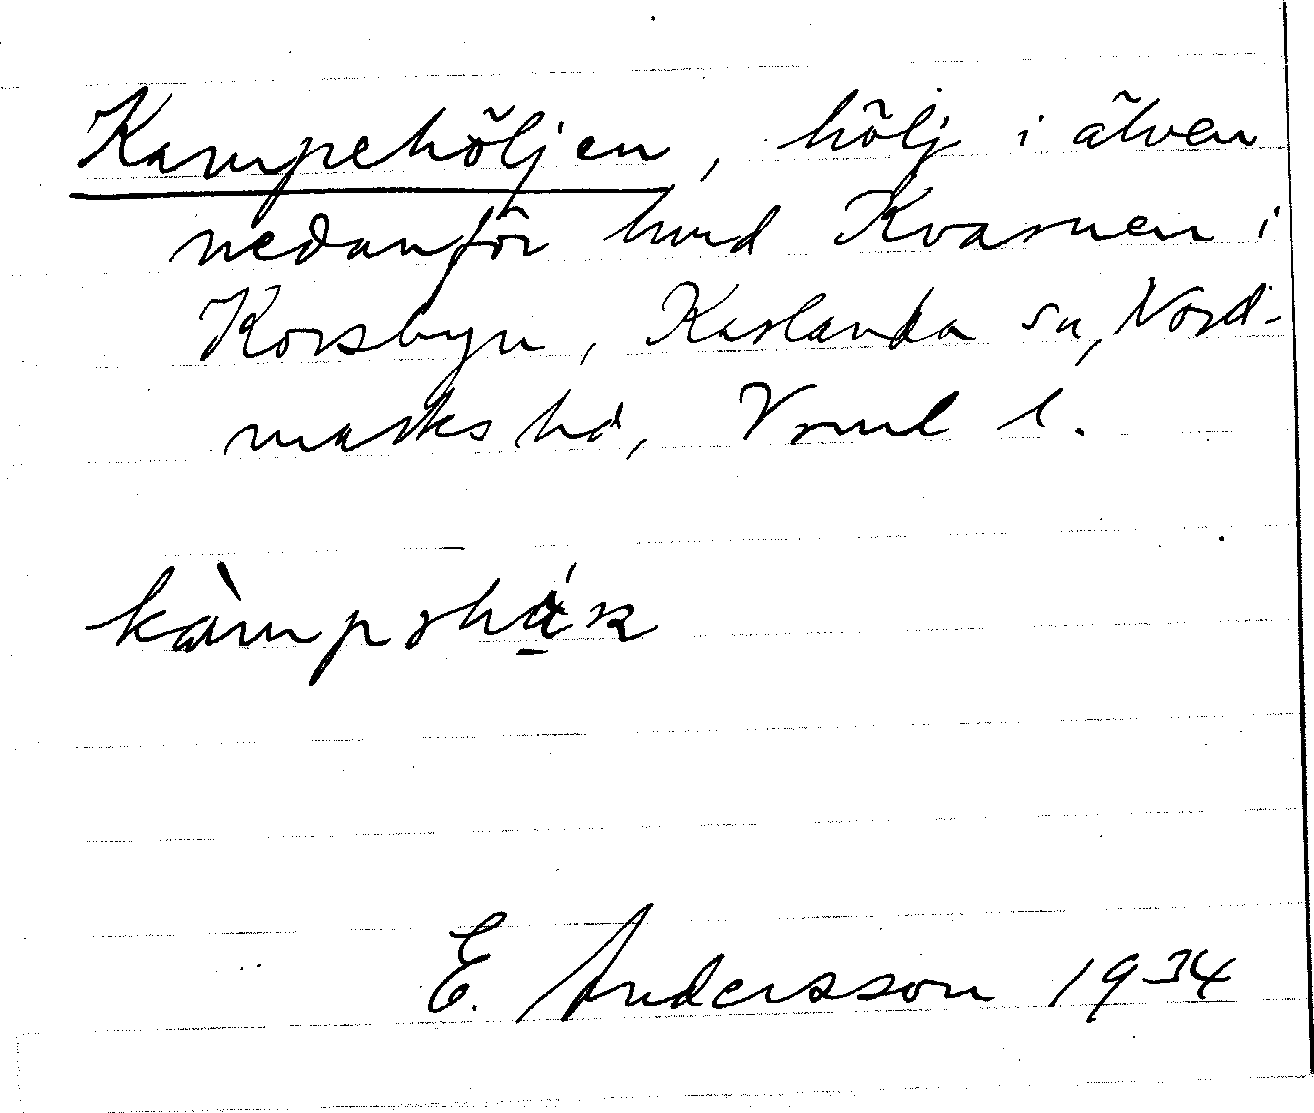 Kampehöljen, hölj i älven
nedanför hmd Kvarnen i
Korsbyn, Karlanda sn, Nord-
marks hd, Vrml l.
E. Andersson 1934